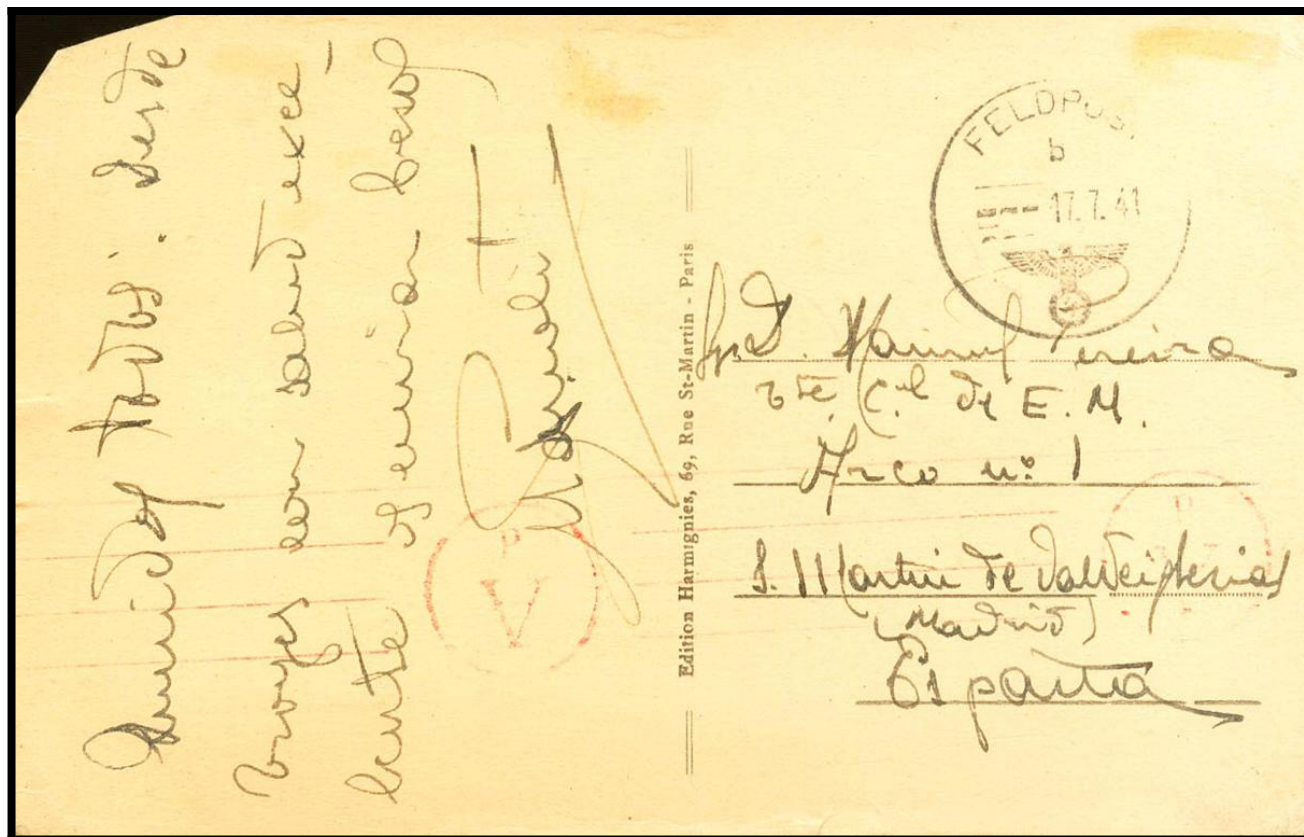 Queridos todos: desde
Troyes con salud exce-
lente os envia besos
Manolo
Edition Harmignies, 69, Rue St-Martin - Paris
FELDPOST
b
17.7.41
Sr. D. Manuel
Tte. C.el de E. M.
Arco nº 1
S. Martin de Valdeiglesias
(Madrid)
España
P
V